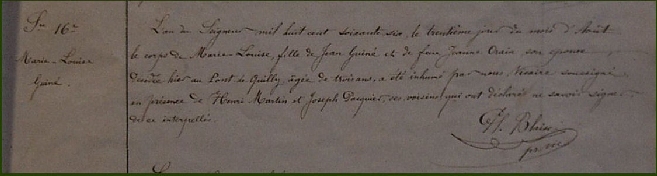 Sre 16e
Marie-Louise
Guiné.
L'an du Seigneur mil huit cent soixante six, le trentième jour du mois d'Août
le corps de Marie-Louise, fille de Jean Guiné et de feue Jeanne Orain, son épouse
décédée hier au Pont de Quilly, âgée de trois ans, a été inhumé par nous, Vicaire soussigné
en présence de Henri Martin et Joseph ses voisins, qui ont déclaré ne savoir signer
de ce interpellés.